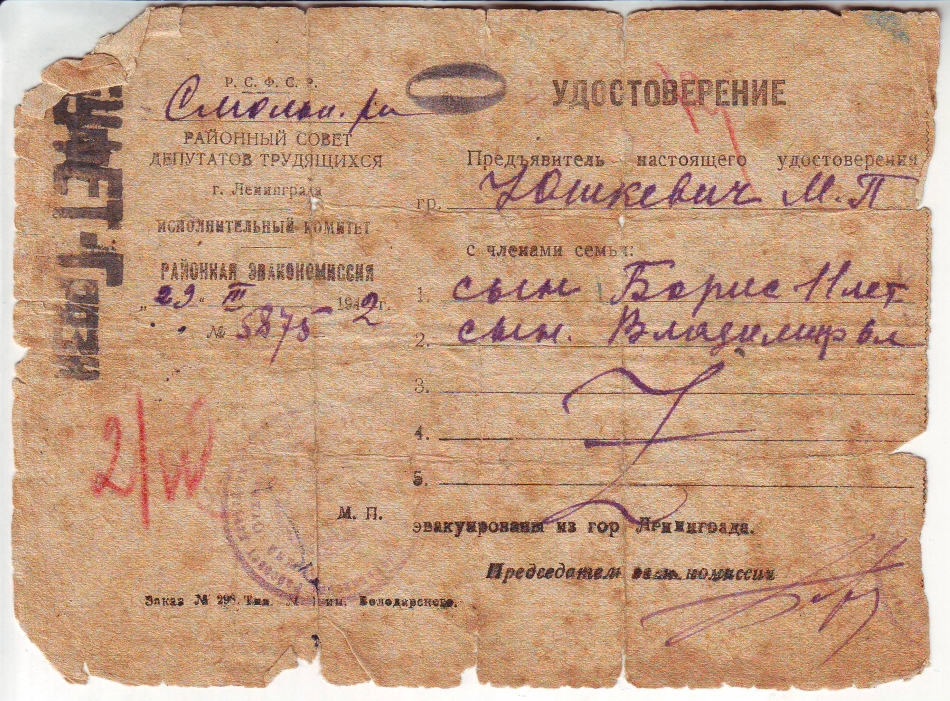 Р. С. Ф. С. Р.
Смольн. р-н
РАЙОННЫЙ СОВЕТ
ДЕПУТАТОВ ТРУДЯЩИХСЯ
г. Ленинграда
ИСПОЛНИТЕЛЬНЫЙ КОМИТЕТ
РАЙОННАЯ ЭВАКОКОМИССИЯ
„29" III 1942 г.
№ 5875
2/IV
М. П.
Заказ № 298. Тип. им. Володарского.
УДОСТОВЕРЕНИЕ
Предъявитель настоящего удостоверения
гр. Юшкевич М. П
с членами семьи:
1. сын Борис 11 лет
2. сын. Владимир 6 л
3.
4.
5.
эвакуированы из гор Ленинграда.
Председатель эвак. комиссии